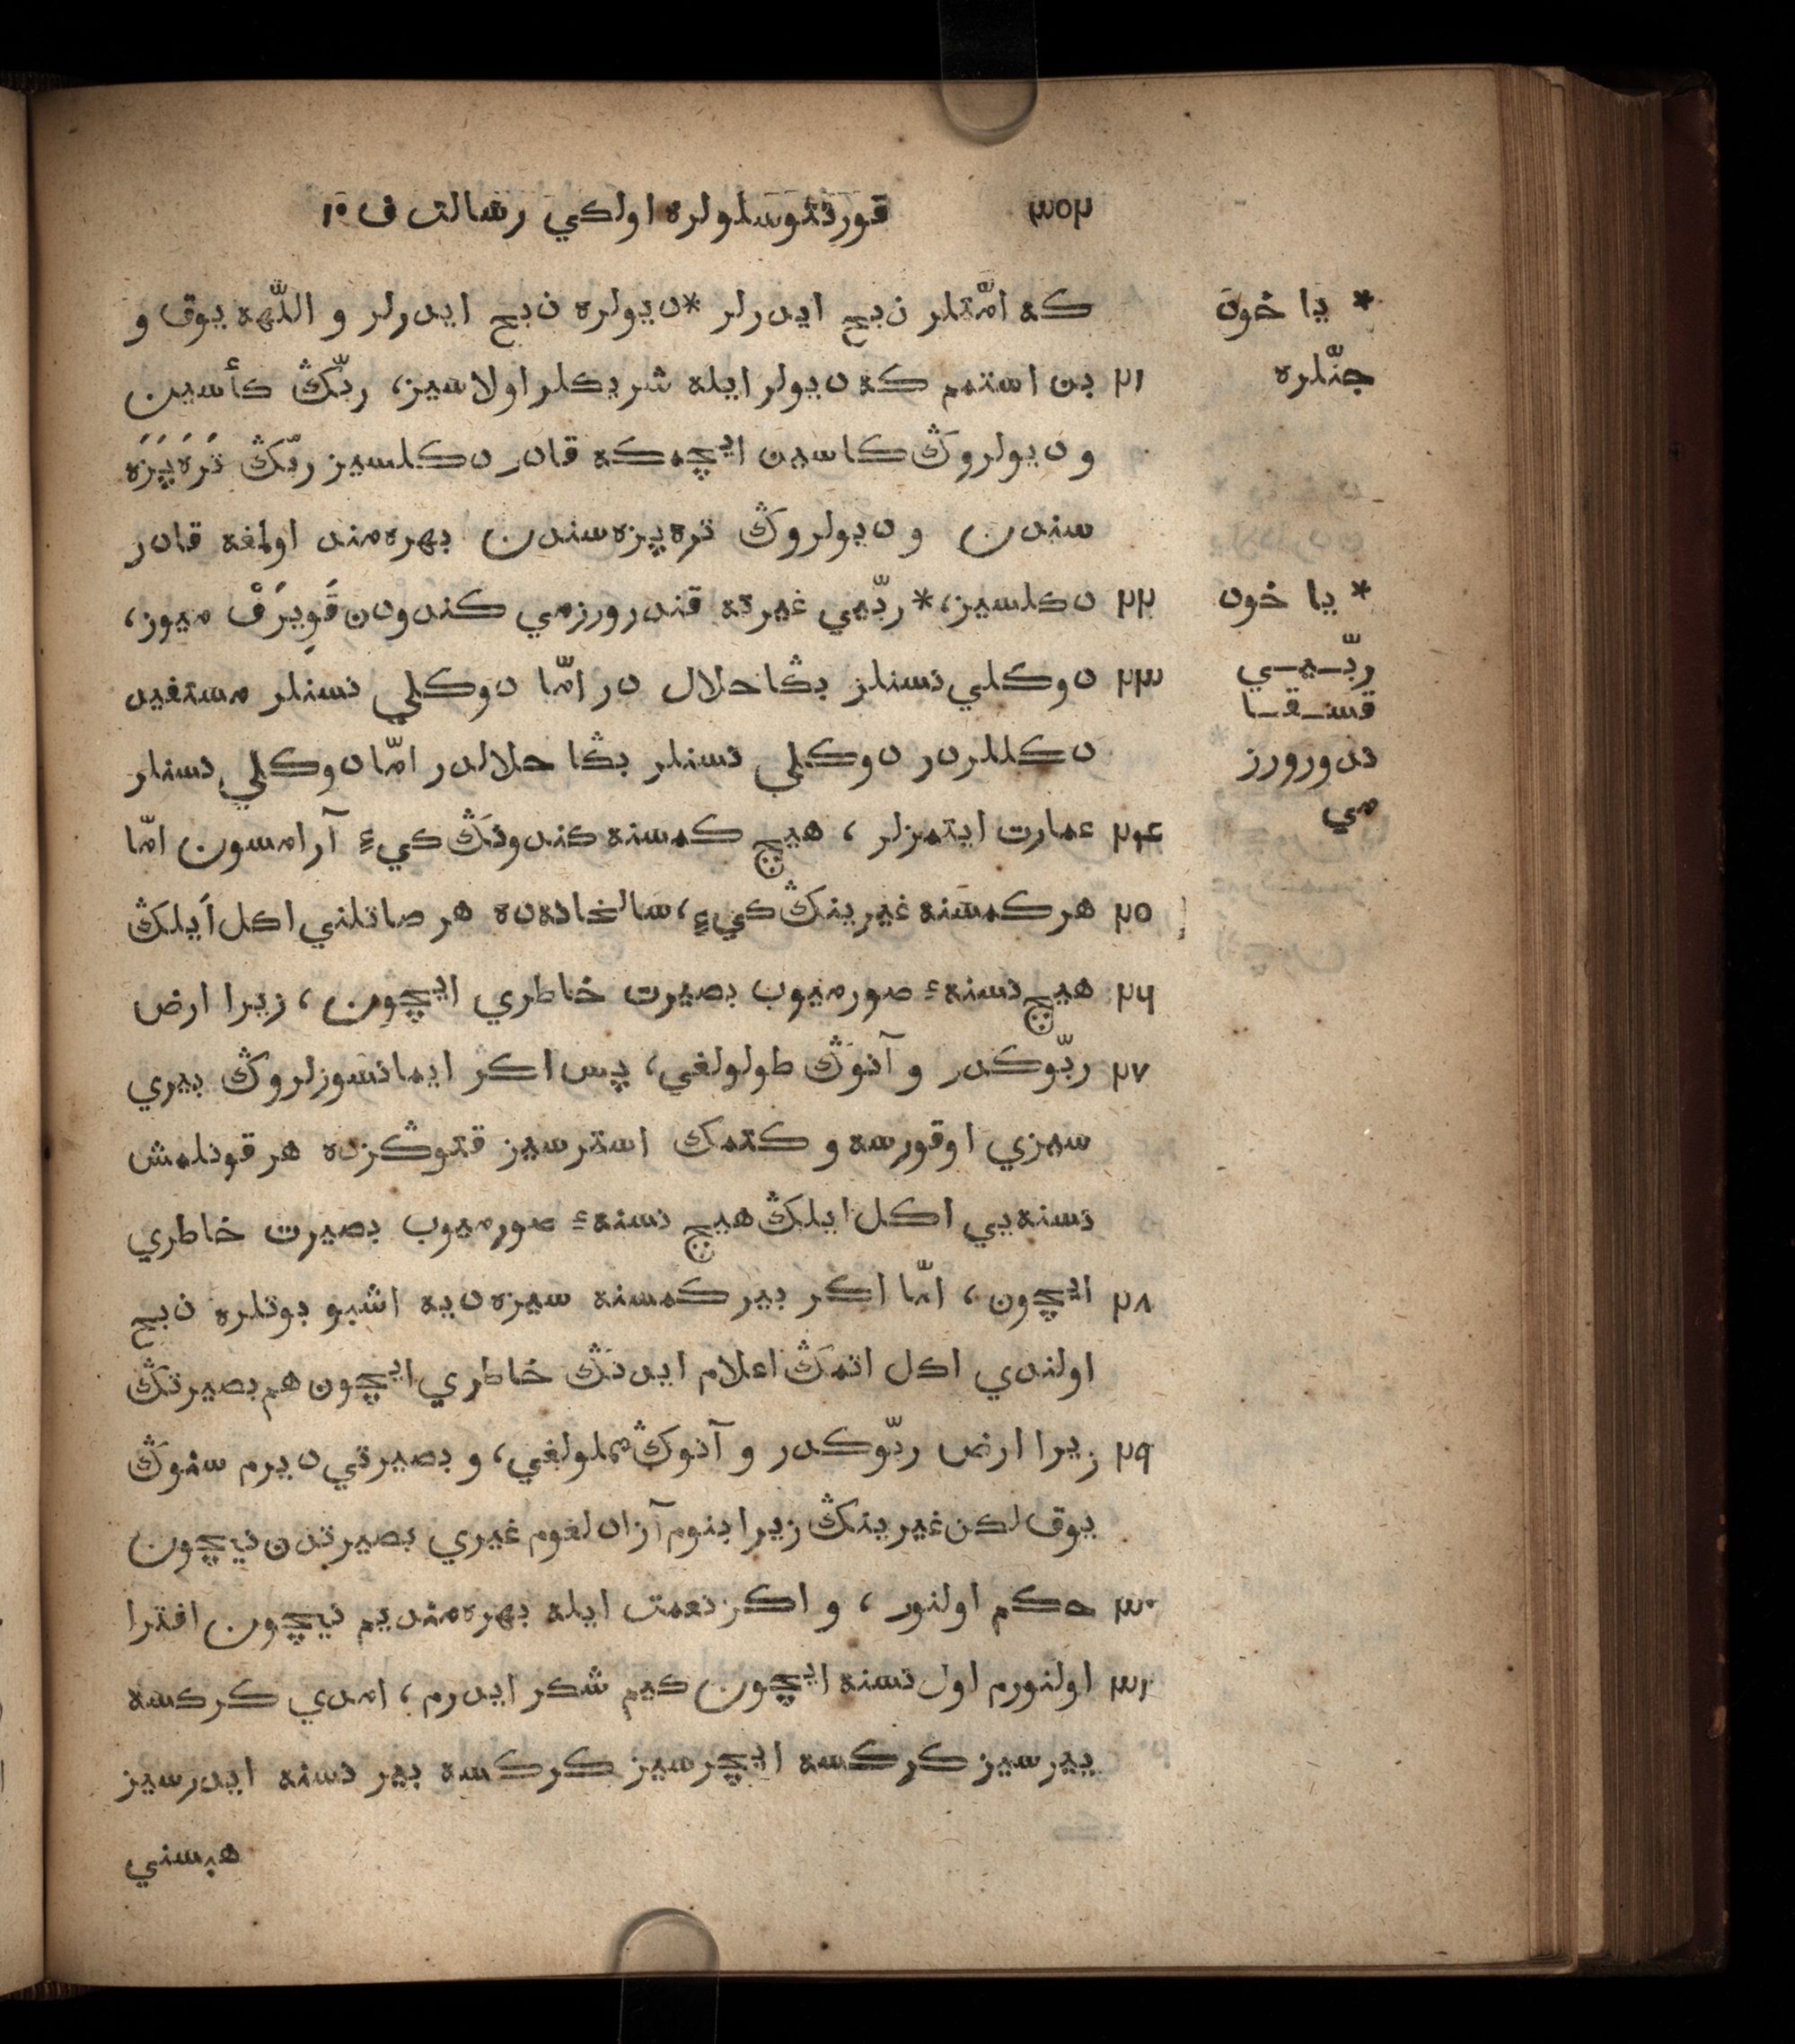 ٣٥٢ قورنثوسلولره اولكي رسالت ف ١٠
كه امّتلر ذبح ايدرلر *ديولره ذبح ايدرلر و اللّهه يوق و
٢١ بن استمم كه ديولر ايله شريكلر اولاسيز، ربّڭ كأسين
و ديولروڭ كاسين ايچمكه قادر دكلسيز ربّڭ تره‌پزه
سندن و ديولروڭ تره‌پزه‌سندن بهره‌مند اولمغه قادر
٢٢ دكلسيز، *ربّيي غيرته قندرورزمي كندودن قويرق ميوز،
٢٣ دوكلي نسنلر بڭا حلال در امّا دوكلي نسنلر مستفيد
دكللردر دوكلي نسنلر بڭا حلالدر امّا دوكلي نسنلر
٢٤ عمارت ايتمزلر ، هيچ كمسنه كندونڭ كيء آرامسون امّا
٢٥ هر كمسنه غيرينڭ كيء، سالخانه‌ده هر صاتلني اكل ايلڭ
٢٦ هيچ نسنهء صورميوب بصيرت خاطري ايچون ، زيرا ارض
٢٧ ربّوكدر و آنوڭ طولولغي، پس اكر ايمانسوزلروڭ بيري
سيزي اوقورسه و كتمك استرسيز قتوڭزده هر قونلمش
نسنه‌يي اكل ايلڭ هيچ نسنهء صورميوب بصيرت خاطري
٢٨ ايچون ، امّا اكر بير كمسنه سيزه ديه اشبو بوتلره ذبح
اولندي اكل اتمڭ اعلام ايدنڭ خاطري ايچون هم بصيرتڭ
٢٩ زيرا ارض ربّوكدر و آنوڭ مملولغي، و بصيرتي ديرم سنوڭ
يوق لكن غيرينڭ زيرا بنوم آزادلغوم غيري بصيرتدن نيچون
٣٠ حكم اولنور ، و اكر نعمت ايله بهره‌منديم نيچون افترا
٣١ اولنورم اول نسنه ايچون كيم شكر ايدرم ، امدي كركسه
ييرسيز كركسه ايچرسيز كركسه بير نسنه ايدرسيز
هپسني
* يا خود
جنّلره
* يا خود
ربّـيـي
قسـقـا
ندورورز
مي